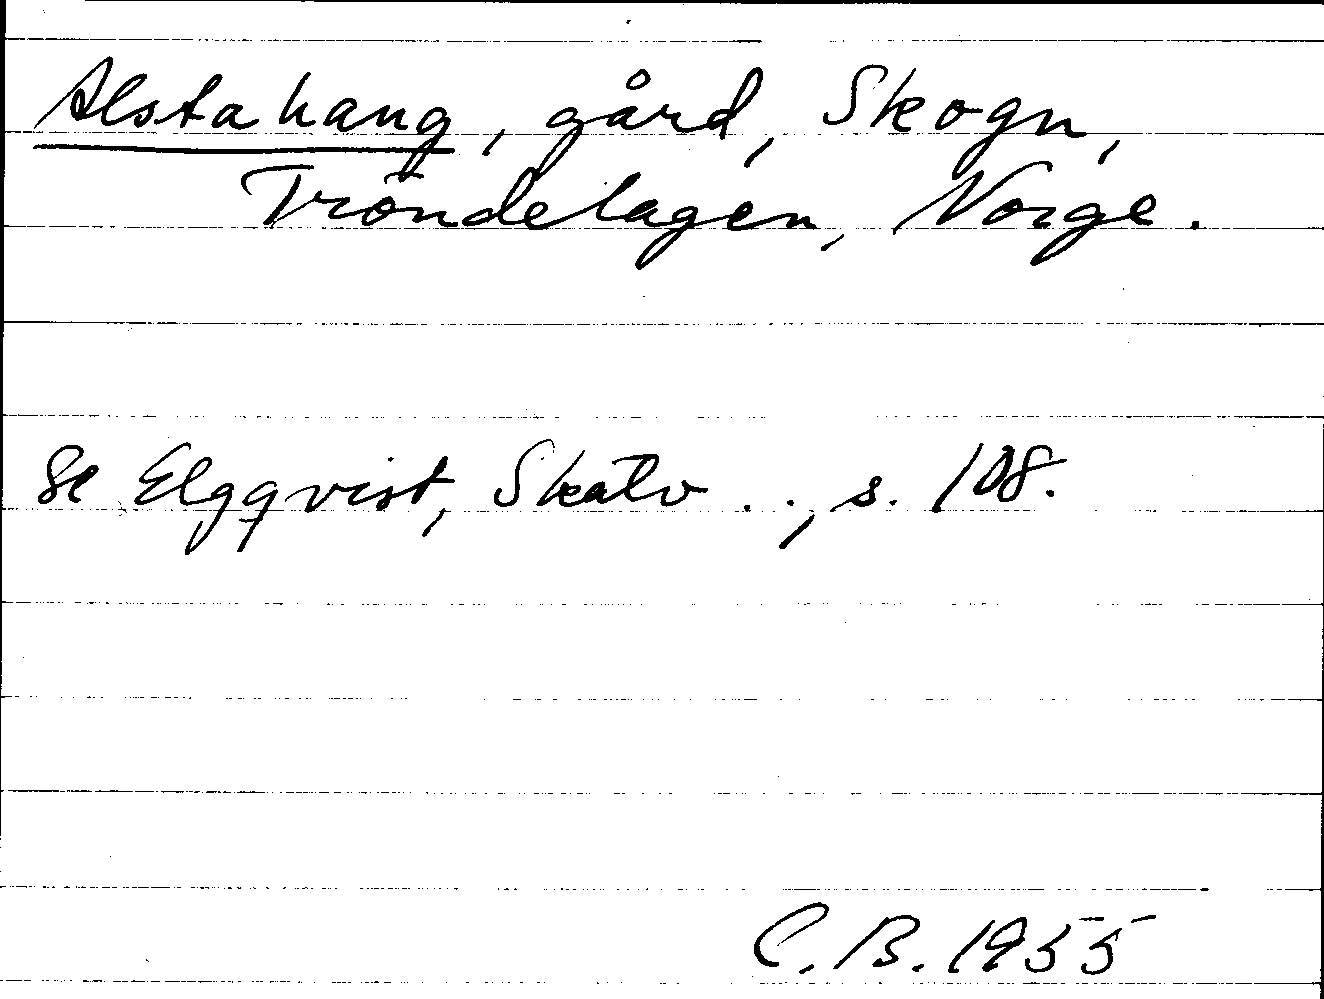 Alstahaug, gård, Skogn,
Tröndelagen, Norge.
Se Elgqvist, Skälv . ., s. 108.
C. B. 1955